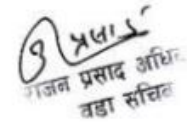 राजन प्रसाद अधि
वडा सचिव